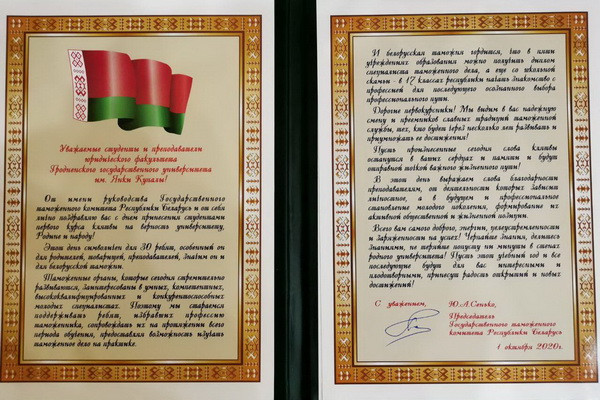 Уважаемые студенты и преподаватели
юридического факультета
Гродненского государственного университета
им. Янки Купалы!
От имени руководства Государственного
таможенного комитета Республики Беларусь и от себя
лично поздравляю вас с днем принесения студентами
первого курса клятвы на верность университету,
Родине и народу!
Этот день символичен для 30 ребят, особенный он
для родителей, товарищей, преподавателей, значим он и
для белорусской таможни.
Таможенные органы, которые сегодня стремительно
развиваются, заинтересованы в умных, компетентных,
высококвалифицированных и конкурентоспособных
молодых специалистах. Поэтому мы стараемся
поддерживать ребят, избравших профессию
таможенника, сопровождать их на протяжении всего
периода обучения, предоставляя возможность изучать
таможенное дело на практике.
И белорусская таможня гордится, что в пяти
учреждениях образования можно получить диплом
специалиста таможенного дела, а еще со школьной
скамьи - в 17 классах республики начать знакомство с
профессией для последующего осознанного выбора
профессионального пути.
Дорогие первокурсники! Мы видим в вас надежную
смену и преемников славных традиций таможенной
службы, тех, кто будет через несколько лет развивать и
приумножать ее достижения!
Пусть произнесенные сегодня слова клятвы
останутся в ваших сердцах и памяти и будут
отправной точкой важного жизненного пути!
В этот день выражаем слова благодарности
преподавателям, от деятельности которых зависит
личностное, а в будущем и профессиональное
становление молодого поколения, формирование их
активной общественной и жизненной позиции.
Всего вам самого доброго, энергии, целеустремленности
и заряженности на успех! Черпайте знания, делитесь
знаниями, не теряйте попусту ни минуты в стенах
родного университета! Пусть этот учебный год и все
последующие будут для вас интересными и
плодотворными, принесут радость открытий и новых
достижений!
С уважением, Ю.А.Сенько,
Председатель
Государственного таможенного
комитета Республики Беларусь
1 октября 2020г.